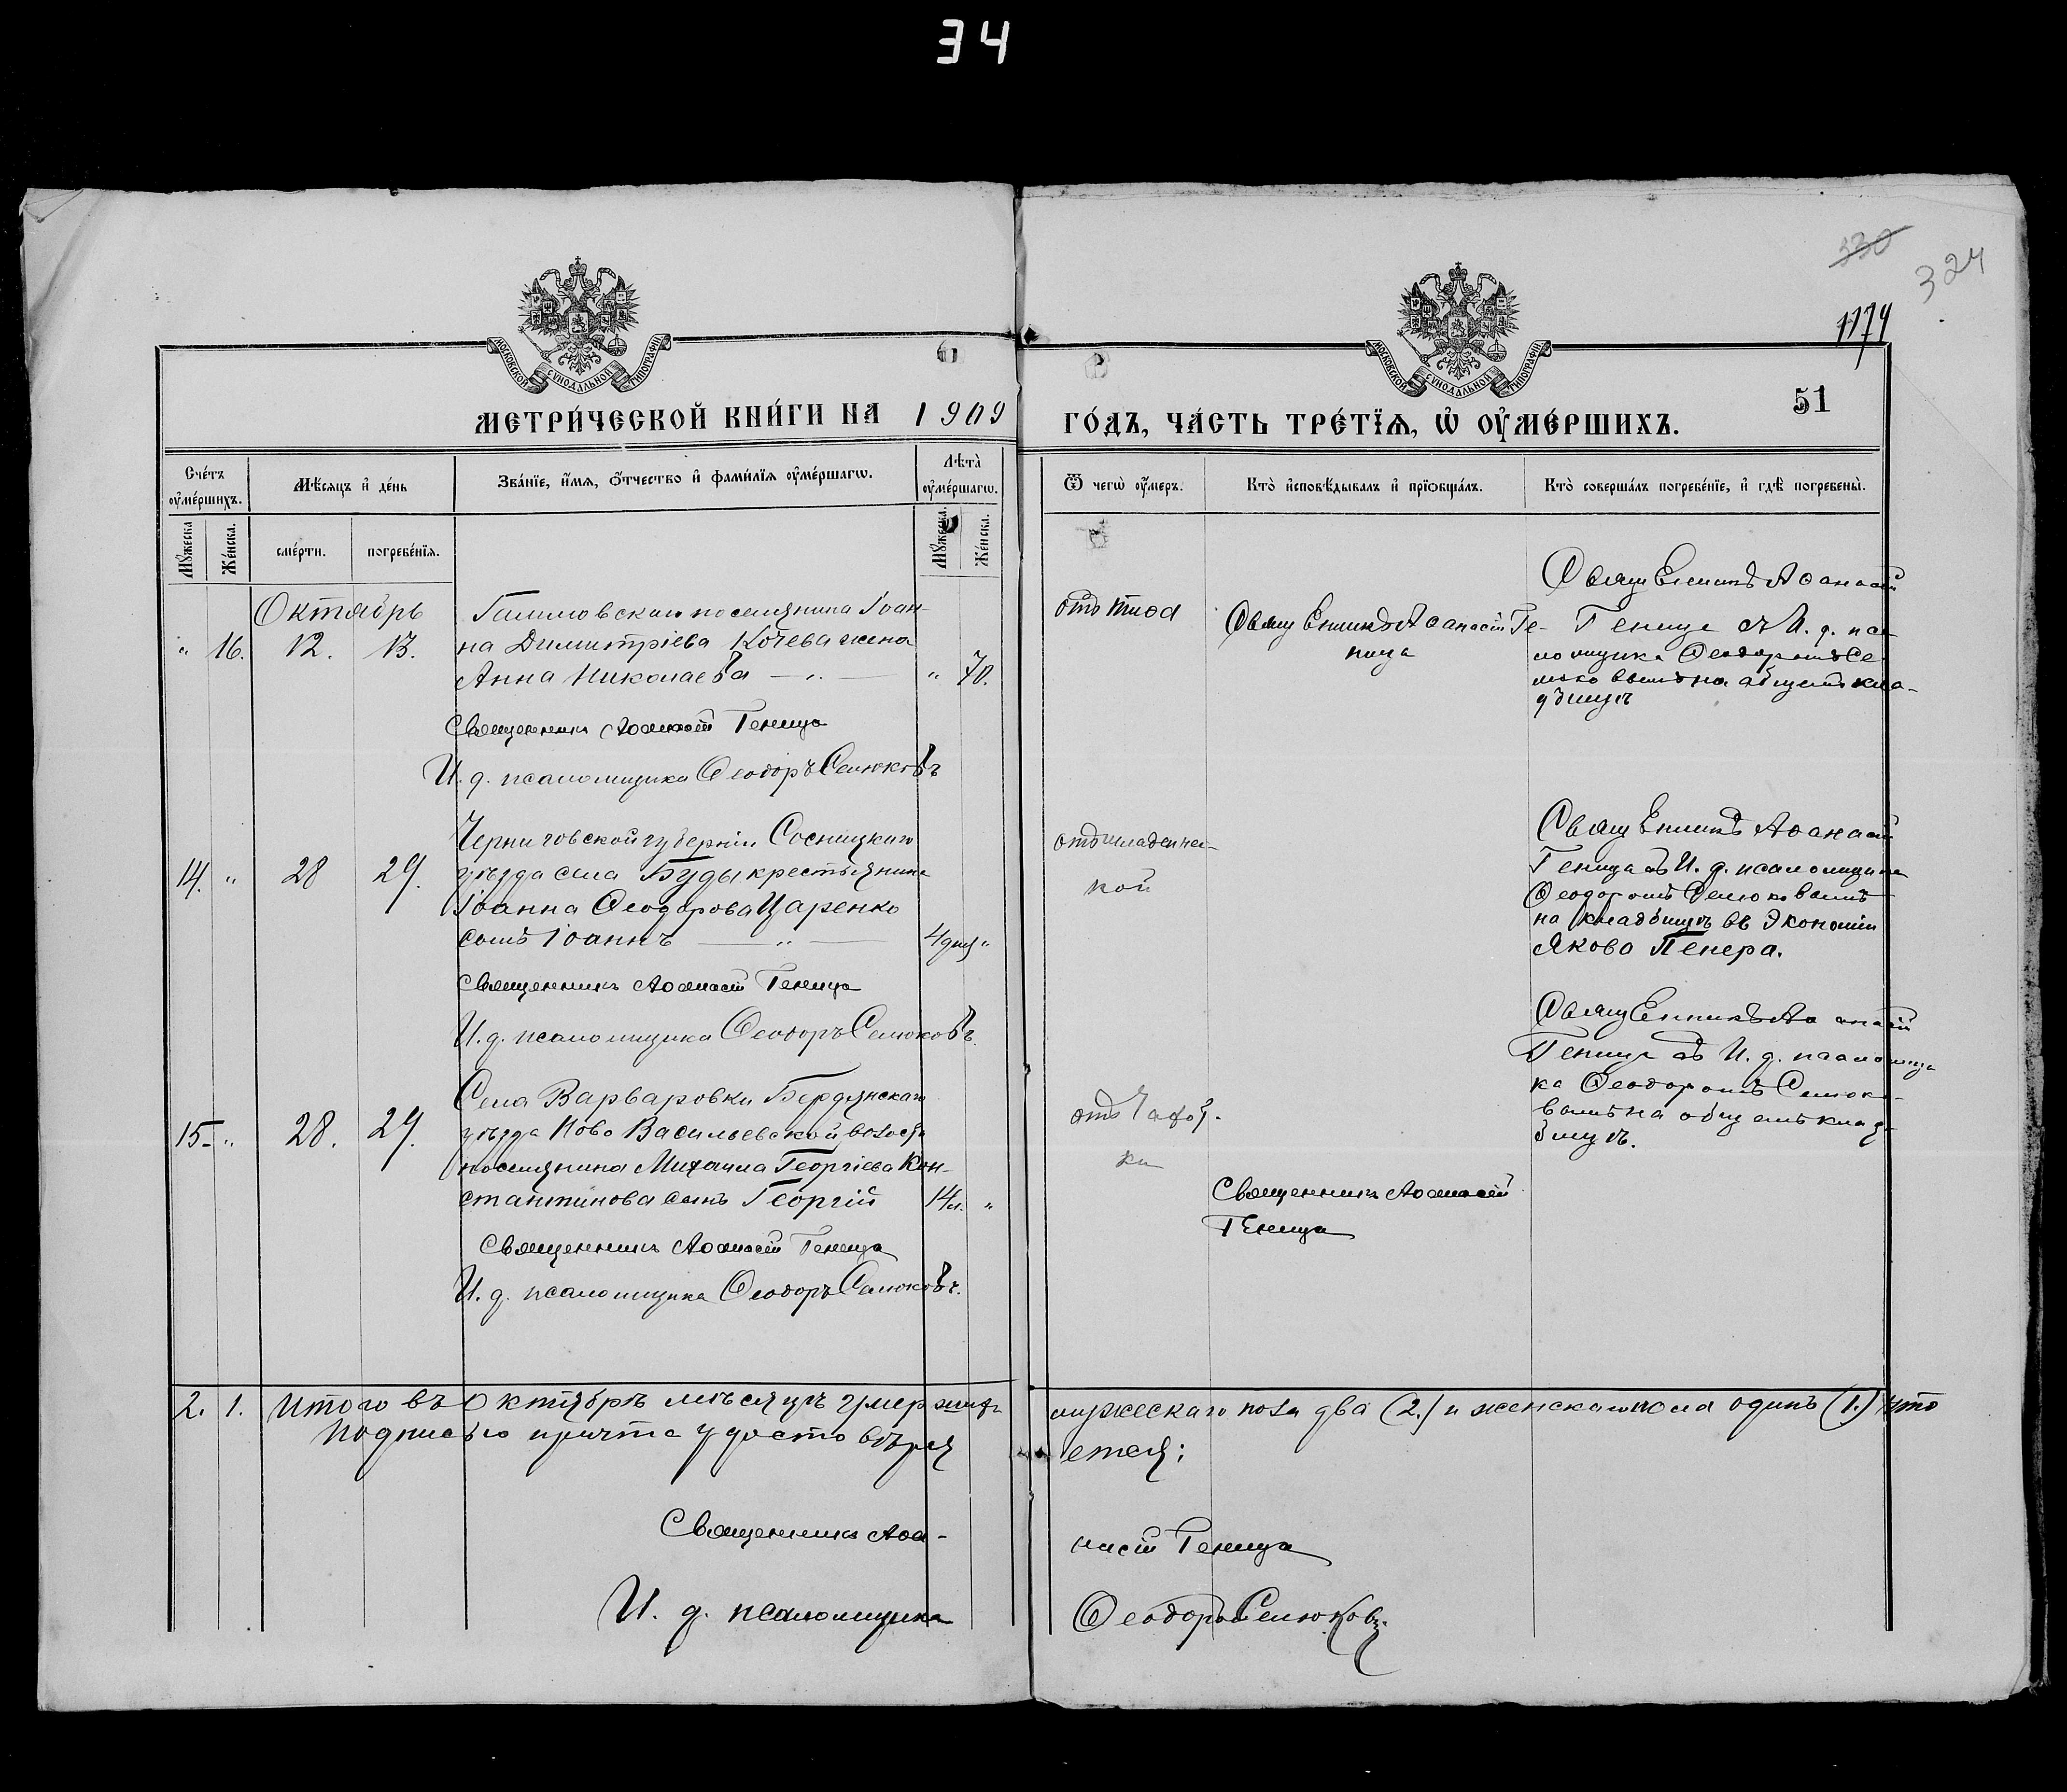 34
330
324
1174
МОСКОВСКОЙ СУНОДАЛЬНОЙ ТИПОГРАФІИ
МОСКОВСКОЙ СУНОДАЛЬНОЙ ТИПОГРАФІИ
51
МЕТРИ́ЧЕСКОЙ КНИ́ГИ НА 1909 ГО́ДЪ, ЧА́СТЬ ТРЕ́ТЇѦ, Ѡ҆ ОУ҆МЕ́РШИХЪ.
Сче́тъ оу҆ме́ршихъ.
Мѣ́сяцъ и҆ де́нь
Зва́нїе, и҆́мѧ, ѻ҆́тчество и҆ фами́лїѧ оу҆ме́ршагѡ.
Лѣ̑та̀ оу҆ме́ршагѡ.
Ѿ чегѡ̀ оу҆́меръ.
Кто̀ и҆сповѣ́дывалъ и҆ прїѡбща́лъ.
Кто̀ соверша́лъ погребе́нїе, и҆ гдѣ̀ погребены̀.
Мꙋ́жеска
Же́нска.
сме́рти.
погребе́нїѧ.
Мꙋ́жеска.
Же́нска.
Октябрь
" 16. 12. 13.
поселянина Іоан-
на Димитріева Кочева жена
Анна Николаева — " — " 70.
Священникъ Аѳанасій Геница
И. д. псаломщика Ѳеодоръ Селюковъ
отъ тифа
Священникъ Аѳанасій Ге-
ница
Священникъ Аѳанасій
Геница съ И. д. пса-
ломщика Ѳеодоромъ Се-
люковымъ на общемъ кла-
дбищѣ
Черниговской губерніи Сосницкаго
14. " 28 29. уѣзда села Буды крестьянина
Іоанна Ѳеодорова Царенко
сынъ Іоаннъ — " — 4 дня "
Священникъ Аѳанасій Геница
И. д. псаломщика Ѳеодоръ Селюковъ.
отъ младенчес-
кой
Священникъ Аѳанасій
Геница съ И. д. псаломщика
Ѳеодоромъ Селюковымъ
на кладбищѣ въ Экономіи
Якова Пенера.
Села Варваровки Бердянскаго
15. " 28. 29. уѣзда Ново Васильевской волости
поселянина Михаила Георгіева Кон-
стантинова сынъ Георгій 14 л. "
Священникъ Аѳанасій Геница
И. д. псаломщика Ѳеодоръ Селюковъ.
отъ чахот-
ки
Священникъ Аѳанасій
Геница
Священникъ Аѳанасій
Геница съ И. д. псаломщи
ка Ѳеодоромъ Селюко-
вымъ на общемъ клад-
бищѣ.
2. 1. Итого въ Октябрѣ мѣсяцѣ умершихъ мужескаго пола два (2.) и женскаго пола одинъ (1.) что
подписью причта удостовѣряется;
Священникъ Аѳа-
насій Геница
И. д. псаломщика Ѳеодоръ Селюковъ.